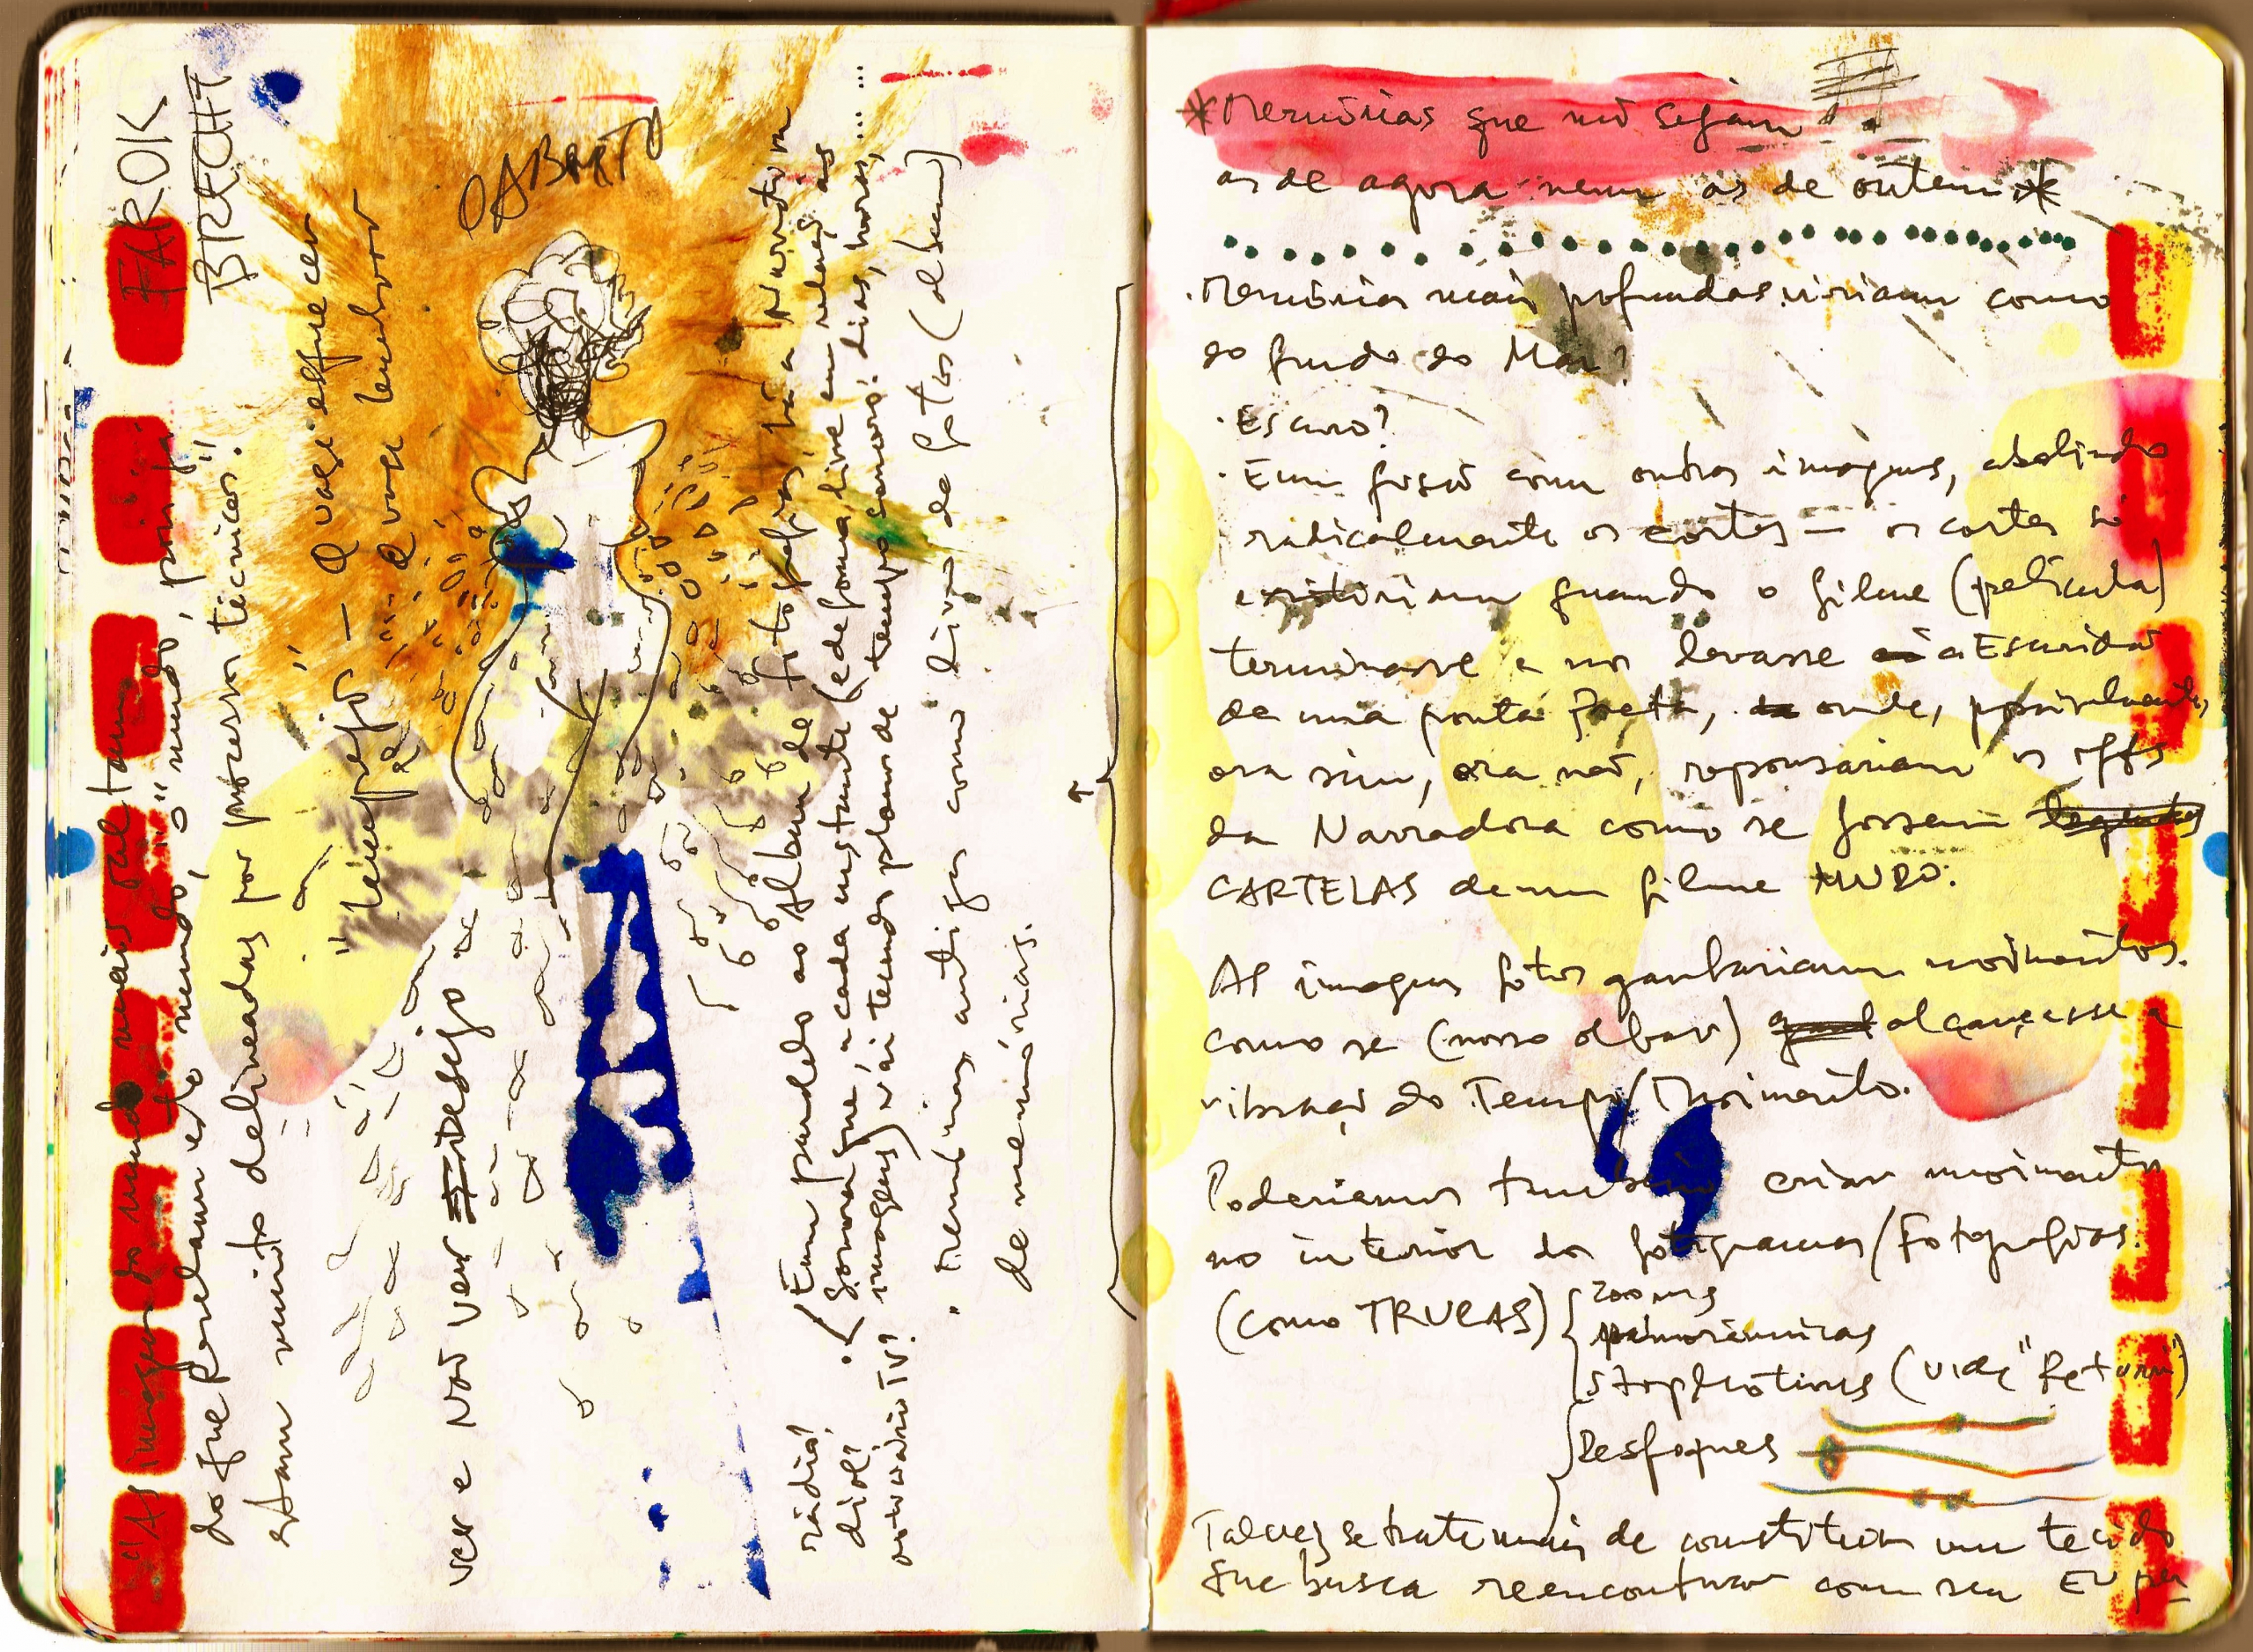 FAROK
BRECHT
"As imagens do mundo mais faltam
do que revelam este mundo, o "mundo", pois já
estam muito delineadas por processos técnicos."
"téle pejo — a quase esquecer
e a quase lembrar
ver e NÃO ver desejo de
(Em paralelo ao Álbum de fotografias, há a Narradora
Sonora que, a cada instante (e de forma livre em relação às
imagens) vai tecendo planos de tempos sonoros: dias, horas, ...
rádio?
noticiário TV?
. Memórias antigas como livro de fotos (álbum)
de memórias.
*Memórias que não sejam
as de agora nem as de ontem*
. Memórias mais profundas viriam como
do fundo do Mar?
. Escuro?
. Em fusão com outras imagens, abolindo
radicalmente os cortes — os cortes só
existiriam quando o filme (película)
terminasse e nos levasse a Escuridão
de uma ponta Preta, onde, possivelmente,
ora sim, ora não, repousariam os offs
da Narradora como se fossem legendas
CARTELAS de um filme MUDO.
As imagens fotos ganhariam movimentos.
como se (nosso olhar) alcançasse a
vibração do Tempo/Movimento.
Poderíamos também criar movimento
no interior dos fotogramas/Fotografias.
(como TRUCAS) { zooms
panorâmicas
stopmotions (vide "Return")
Desfoques
Talvez se trate mais de constituir um tecido
que busca reencontrar com seu EU per-